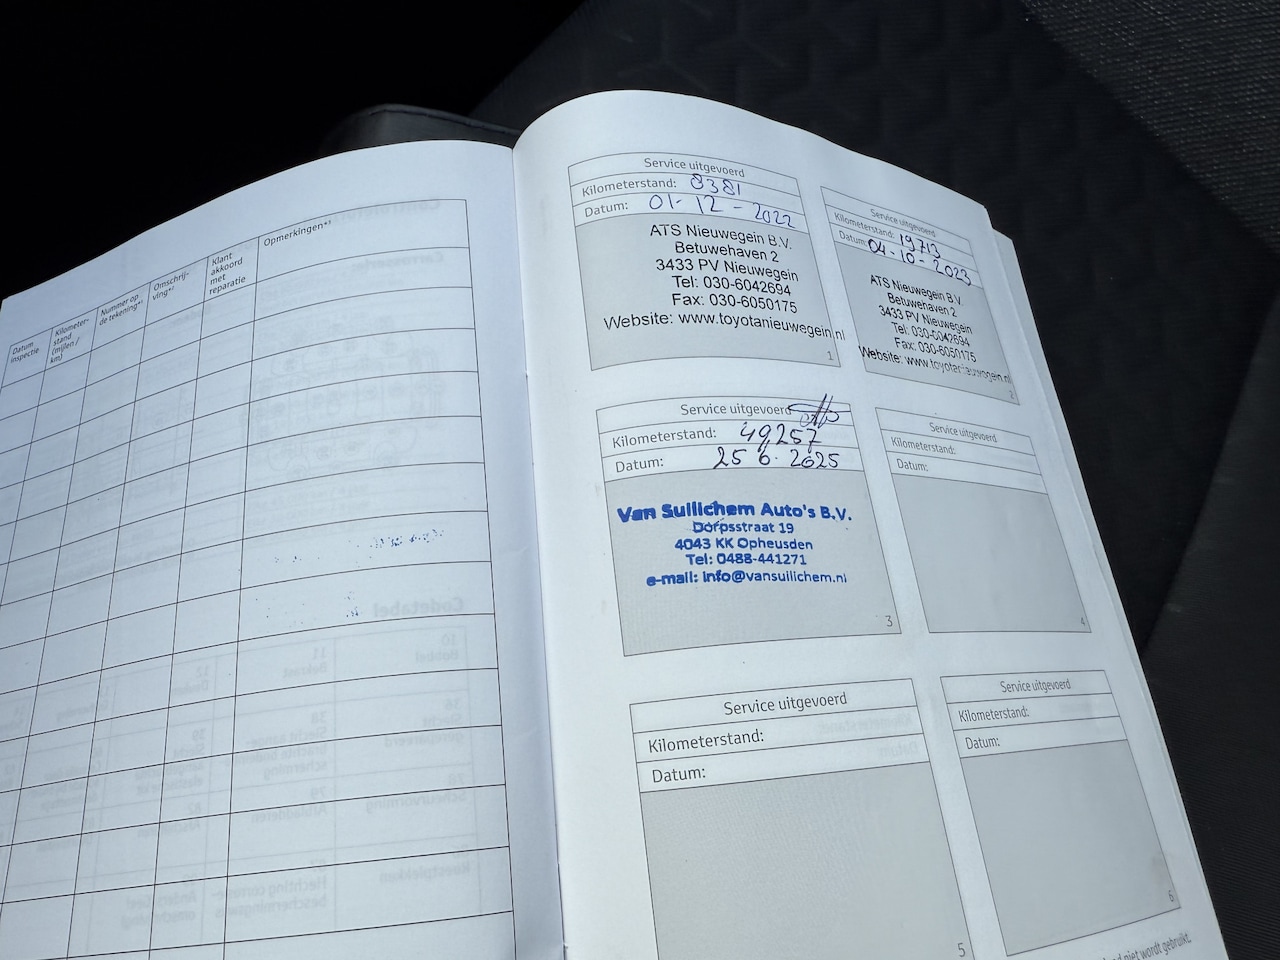 Datum inspectie
Kilometer-stand (mijlen / km)
Nummer op de tekening*¹
Omschrij-ving*²
Klant akkoord met reparatie
Opmerkingen*³
Service uitgevoerd
Kilometerstand: 8381
Datum: 01-12-2022
ATS Nieuwegein B.V.
Betuwehaven 2
3433 PV Nieuwegein
Tel: 030-6042694
Fax: 030-6050175
Website: www.toyotanieuwegein.nl
1
Service uitgevoerd
Kilometerstand: 19713
Datum: 04-10-2023
ATS Nieuwegein B.V.
Betuwehaven 2
3433 PV Nieuwegein
Tel: 030-6042694
Fax: 030-6050175
Website: www.toyotanieuwegein.nl
2
Service uitgevoerd
Kilometerstand: 49,257
Datum: 25 6. 2025
Van Sullichem Auto's B.V.
Dorpsstraat 19
4043 KK Opheusden
Tel: 0488-441271
e-mail: info@vansullichem.nl
3
Service uitgevoerd
Kilometerstand:
Datum:
4
Service uitgevoerd
Kilometerstand:
Datum:
5
Service uitgevoerd
Kilometerstand:
Datum:
6
niet wordt gebruikt.